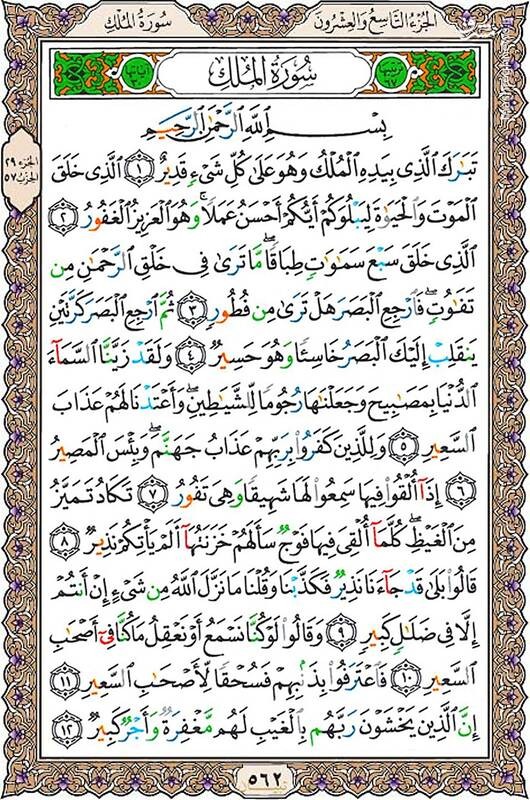 الجزء التاسع والعشرون
سورة الملك
سُورَةُ المُلكِ
ترتيبها
آياتها
الجزء ٢٩
الحزب ٥٧
بِسۡمِ ٱللَّهِ ٱلرَّحۡمَٰنِ ٱلرَّحِيمِ
تَبَٰرَكَ ٱلَّذِي بِيَدِهِ ٱلۡمُلۡكُ وَهُوَ عَلَىٰ كُلِّ شَيۡءٖ قَدِيرٌ ١ ٱلَّذِي خَلَقَ
ٱلۡمَوۡتَ وَٱلۡحَيَوٰةَ لِيَبۡلُوَكُمۡ أَيُّكُمۡ أَحۡسَنُ عَمَلٗاۚ وَهُوَ ٱلۡعَزِيزُ ٱلۡغَفُورُ ٢
ٱلَّذِي خَلَقَ سَبۡعَ سَمَٰوَٰتٖ طِبَاقٗاۖ مَّا تَرَىٰ فِي خَلۡقِ ٱلرَّحۡمَٰنِ مِن
تَفَٰوُتٖۖ فَٱرۡجِعِ ٱلۡبَصَرَ هَلۡ تَرَىٰ مِن فُطُورٖ ٣ ثُمَّ ٱرۡجِعِ ٱلۡبَصَرَ كَرَّتَيۡنِ
يَنقَلِبۡ إِلَيۡكَ ٱلۡبَصَرُ خَاسِئٗا وَهُوَ حَسِيرٞ ٤ وَلَقَدۡ زَيَّنَّا ٱلسَّمَآءَ
ٱلدُّنۡيَا بِمَصَٰبِيحَ وَجَعَلۡنَٰهَا رُجُومٗا لِّلشَّيَٰطِينِۖ وَأَعۡتَدۡنَا لَهُمۡ عَذَابَ
ٱلسَّعِيرِ ٥ وَلِلَّذِينَ كَفَرُواْ بِرَبِّهِمۡ عَذَابُ جَهَنَّمَۖ وَبِئۡسَ ٱلۡمَصِيرُ
٦ إِذَآ أُلۡقُواْ فِيهَا سَمِعُواْ لَهَا شَهِيقٗا وَهِيَ تَفُورُ ٧ تَكَادُ تَمَيَّزُ
مِنَ ٱلۡغَيۡظِۖ كُلَّمَآ أُلۡقِيَ فِيهَا فَوۡجٞ سَأَلَهُمۡ خَزَنَتُهَآ أَلَمۡ يَأۡتِكُمۡ نَذِيرٞ ٨
قَالُواْ بَلَىٰ قَدۡ جَآءَنَا نَذِيرٞ فَكَذَّبۡنَا وَقُلۡنَا مَا نَزَّلَ ٱللَّهُ مِن شَيۡءٍ إِنۡ أَنتُمۡ
إِلَّا فِي ضَلَٰلٖ كَبِيرٖ ٩ وَقَالُواْ لَوۡ كُنَّا نَسۡمَعُ أَوۡ نَعۡقِلُ مَا كُنَّا فِيٓ أَصۡحَٰبِ
ٱلسَّعِيرِ ١٠ فَٱعۡتَرَفُواْ بِذَنۢبِهِمۡ فَسُحۡقٗا لِّأَصۡحَٰبِ ٱلسَّعِيرِ ١١
إِنَّ ٱلَّذِينَ يَخۡشَوۡنَ رَبَّهُم بِٱلۡغَيۡبِ لَهُم مَّغۡفِرَةٞ وَأَجۡرٞ كَبِيرٞ ١٢
٥٦٢